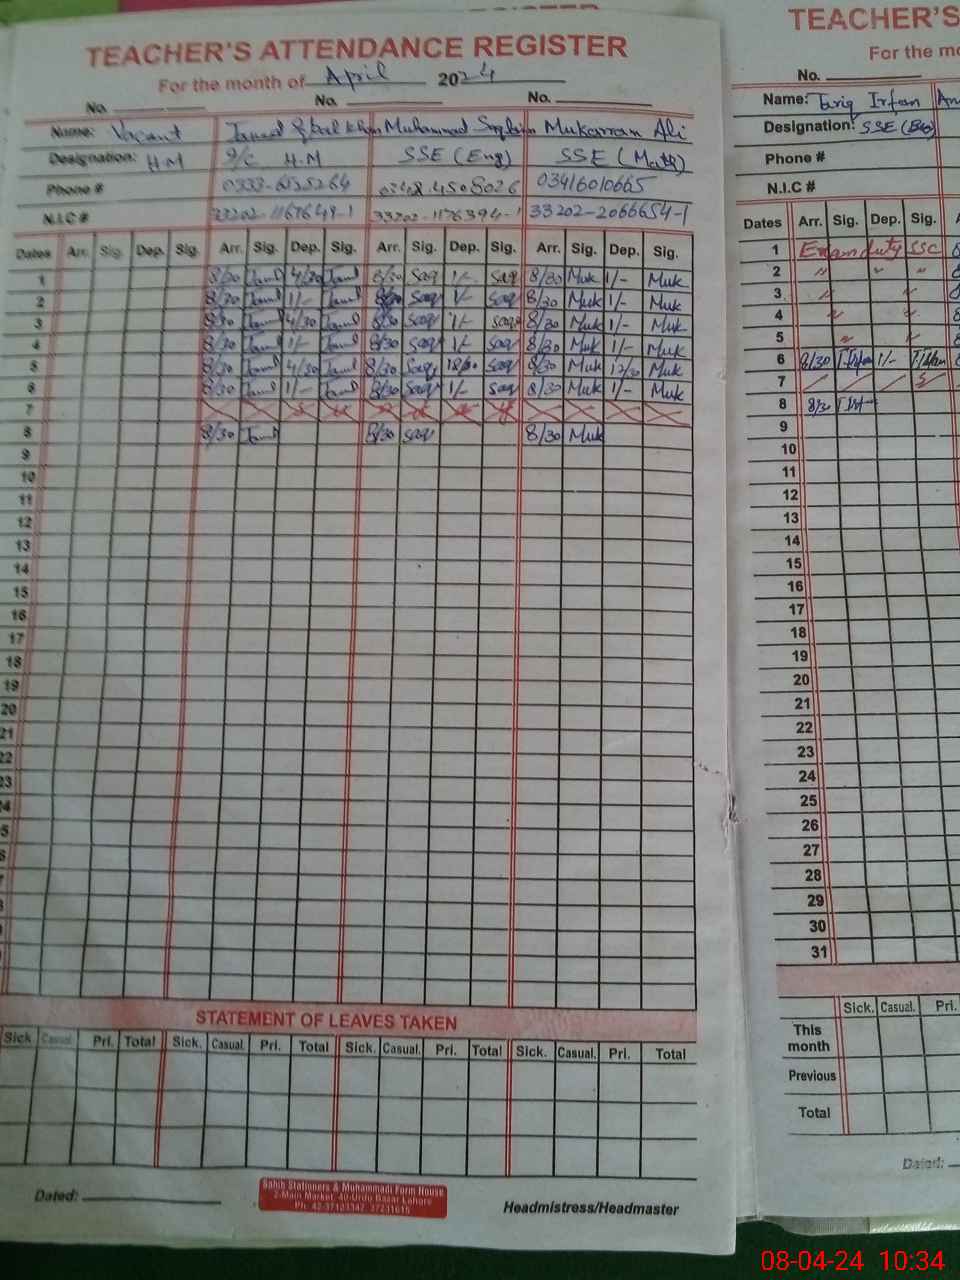 TEACHER'S ATTENDANCE REGISTER
For the month of April 2024
No. No. No.
Name: Vacant Javed Iqbal khan Muhammad Mukarram Ali
Designation: H.M I/C H.M SSE (Eng) SSE (Math)
Phone # 0333-6525264 0348.4508026 03416010665
N.I.C # 33202-1167649-1 33202-1176394-1 33202-2066654-1
Dates Arr. Sig. Dep. Sig. Arr. Sig. Dep. Sig. Arr. Sig. Dep. Sig. Arr. Sig. Dep. Sig.
1 8/30 4/30 8/30 Saq 1/- Saq 8/30 Muk 1/- Muk
2 8/30 1/- 8/30 Saq 1/- Saq 8/30 Muk 1/- Muk
3 8/30 4/30 8/30 Saq 1/- Saq 8/30 Muk 1/- Muk
4 8/30 1/- 8/30 Saq 1/- Saq 8/30 Muk 1/- Muk
5 8/30 4/30 8/30 Saq 12/30 Saq 8/30 Muk 12/30 Muk
6 8/30 1/- 8/30 Saq 1/- Saq 8/30 Muk 1/- Muk
7
8 8/30 8/30 Saq 8/30 Muk
9
10
11
12
13
14
15
16
17
18
19
20
21
22
23
24
STATEMENT OF LEAVES TAKEN
Sick Casual. Pri. Total Sick. Casual. Pri. Total Sick. Casual. Pri. Total Sick. Casual. Pri. Total
Dated:
Sahib Stationers & Muhammadi Form House
2-Main Market, 40-Urdu Bazar Lahore
Ph: 42-37123347, 37231615
Headmistress/Headmaster
TEACHER'S
For the mo
No.
Name: Tariq Irfan
Designation: SSE (Bio)
Phone #
N.I.C #
Dates Arr. Sig. Dep. Sig.
1 Exam duty SSC
2 〃 〃 〃
3 〃 〃
4 〃 〃
5 〃 〃
6 8/30 1/-
7
8 8/30
9
10
11
12
13
14
15
16
17
18
19
20
21
22
23
24
25
26
27
28
29
30
31
Sick. Casual. Pri.
This month
Previous
Total
Dated:
08-04-24 10:34